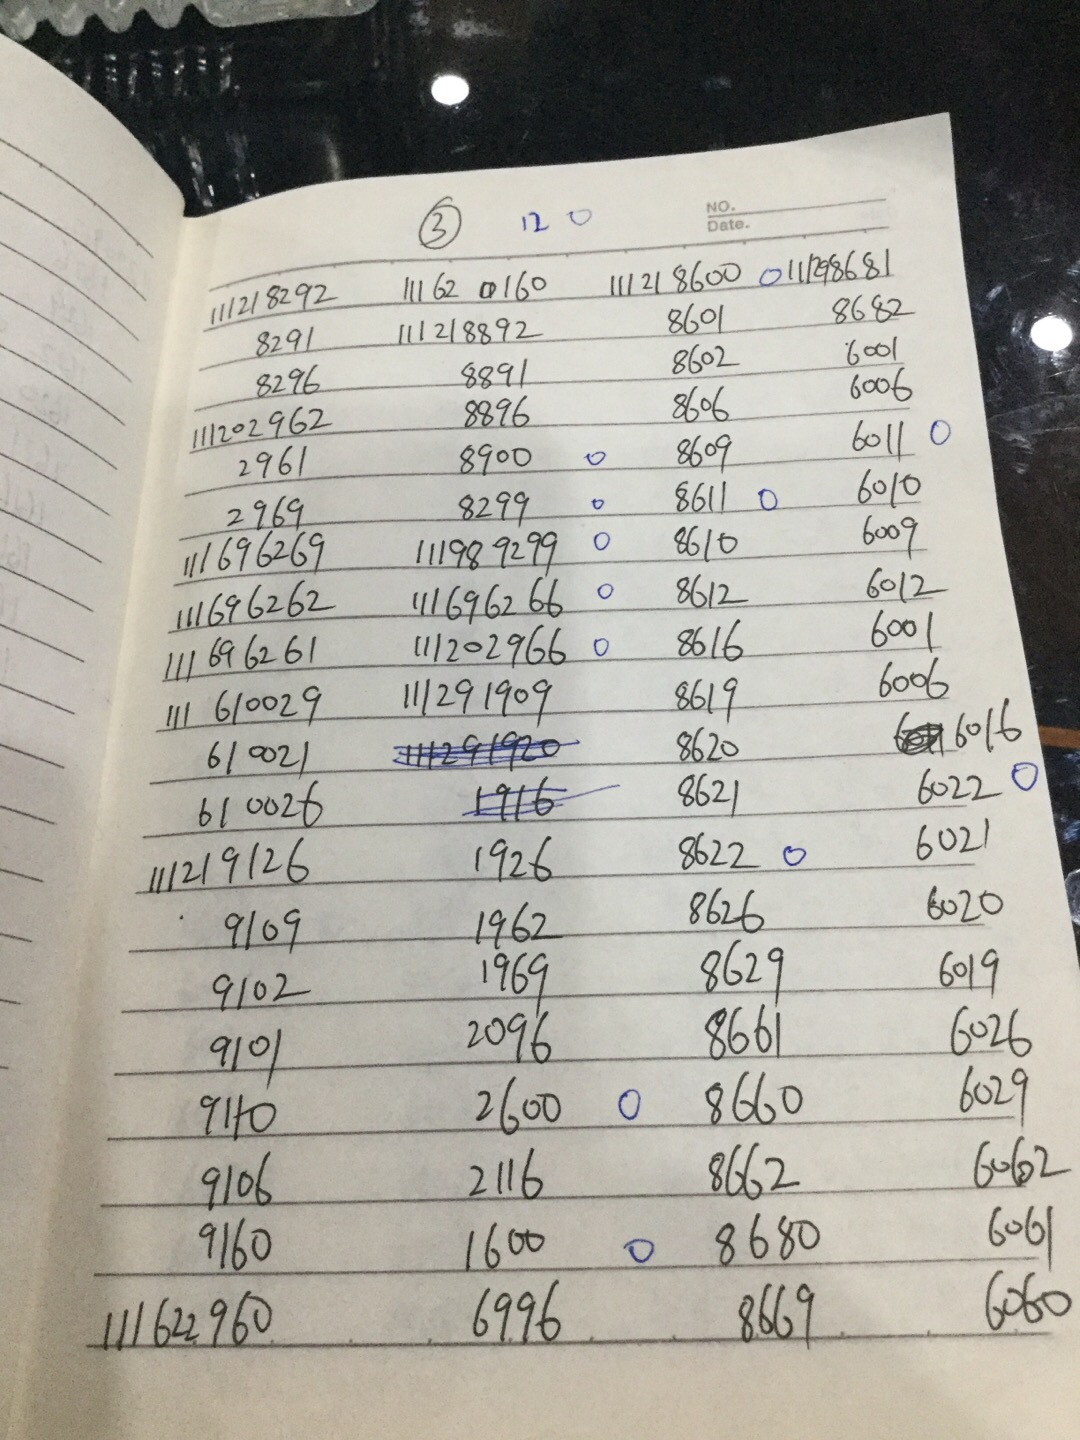 ③ 12 0 NO.
Date.
111218292 11162 0160 111218600 0 111298681
8291 111218892 8601 8682
8296 8891 8602 6001
111202962 8896 8606 6006
2961 8900 0 8609 6011 0
2969 8299 0 8611 0 6010
111696269 111989299 0 8610 6009
111696262 111696266 0 8612 6012
111696261 111202966 0 8616 6001
111 610029 111291909 8619 6006
610021 111291920 8620 6016
610026 1916 8621 6022 0
111219126 1926 8622 0 6021
9109 1962 8626 6020
9102 1969 8629 6019
9101 2096 8661 6026
9110 2600 0 8660 6029
9106 2116 8662 6062
9160 1600 0 8680 6061
111622960 6996 8669 6060